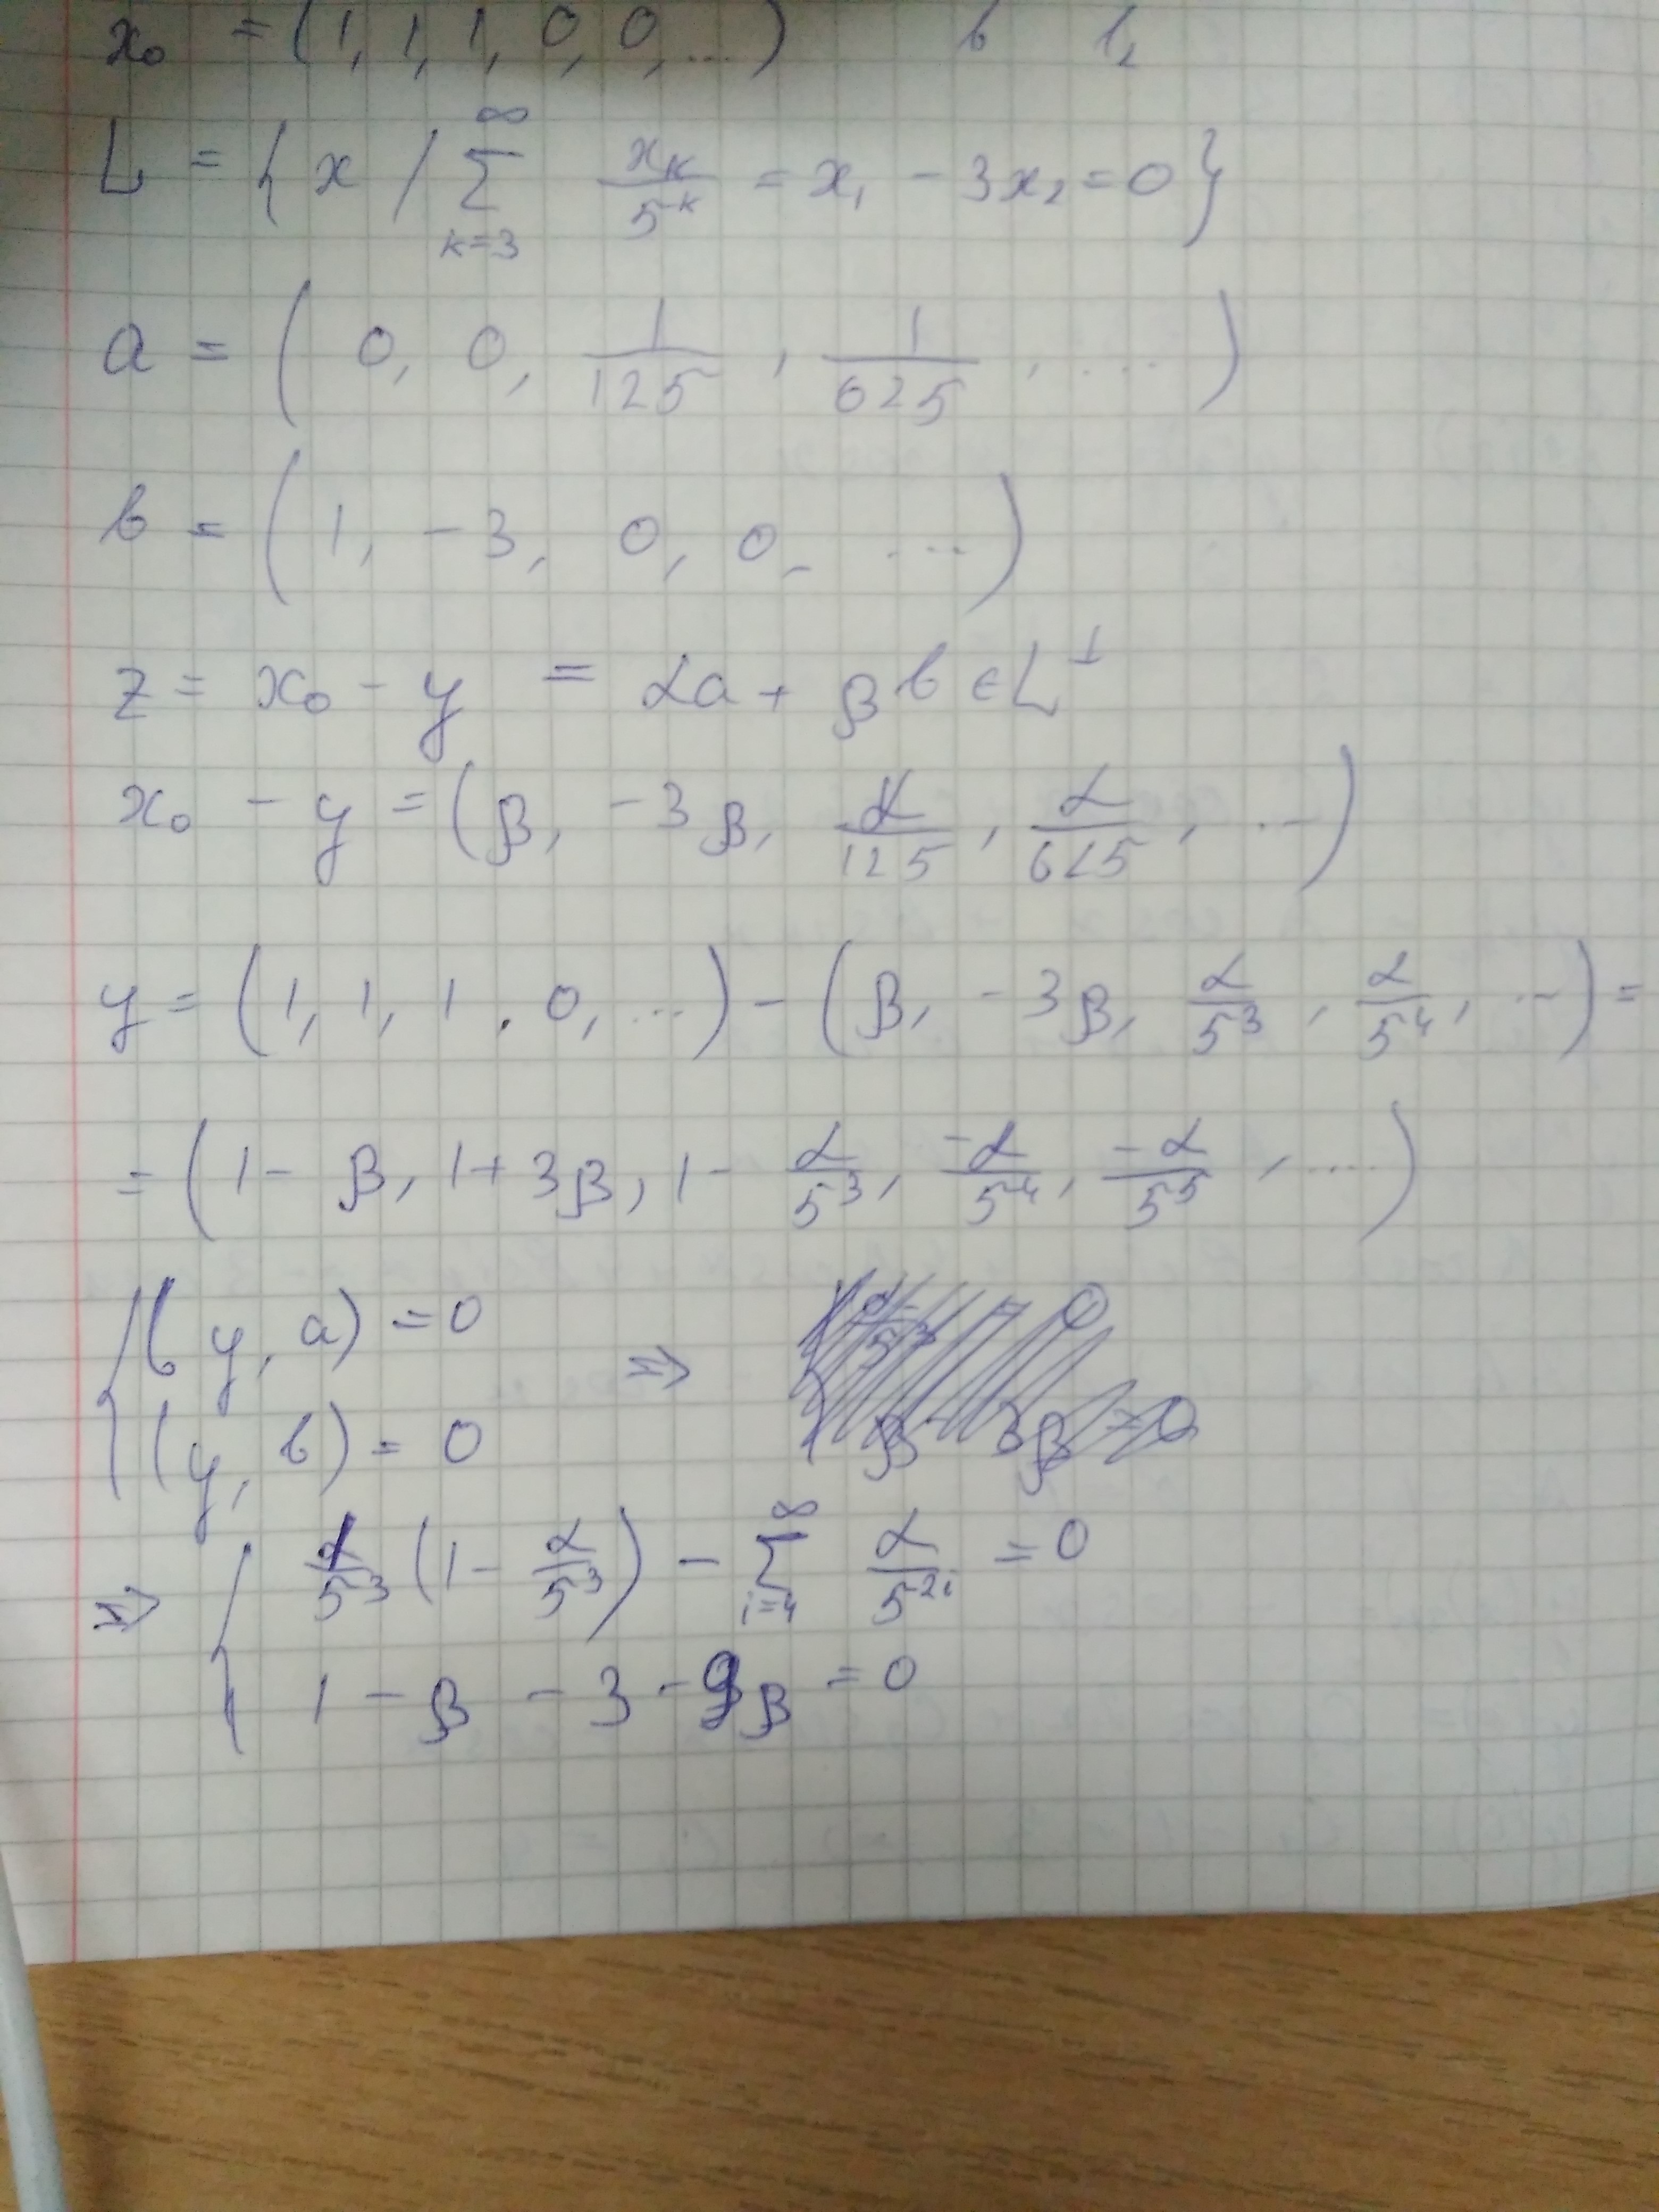 x₀ = (1, 1, 1, 0, 0, ...) в l₂
L = { x / ∑_{k=3}^{∞} x_k/5^k = x₁ - 3x₂ = 0 }
a = ( 0, 0, 1/125, 1/625, .... )
b = ( 1, -3, 0, 0, ... )
z = x₀ - y = αa + βb ∈ L^⊥
x₀ - y = (β, -3β, α/125, α/625, ...)
y = (1, 1, 1, 0, ...) - (β, -3β, α/5³, α/5⁴, ...) =
= (1 - β, 1 + 3β, 1 - α/5³, -α/5⁴, -α/5⁵, ....)
{ (y, a) = 0 ⇒
(y, b) = 0
⇒ { 1/5³ (1 - α/5³) - ∑_{i=4}^{∞} α/5^{2i} = 0
1 - β - 3 - 9β = 0